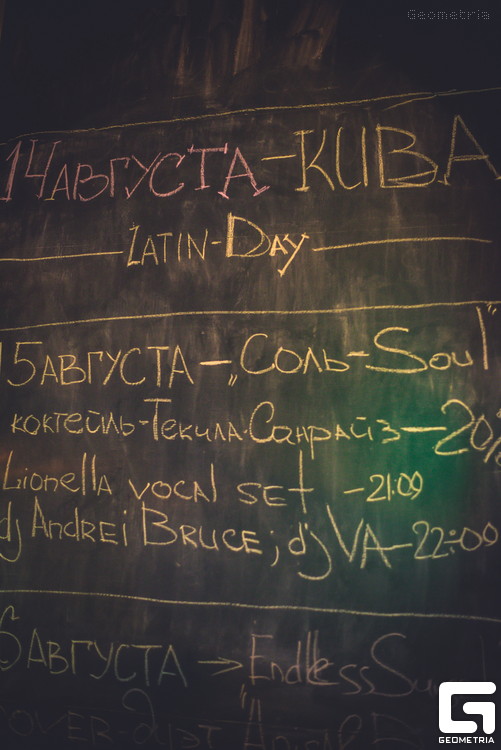 Geometria
14 АВГУСТА - КUBA
LATIN-DAY
15 АВГУСТА - „Соль-Soul"
коктейль-Текила Санрайз-20%
Lionella vocal set -21.09
dj Andrei BRUCE; dj VA-22:00
6 АВГУСТА → Endless
GEOMETRIA